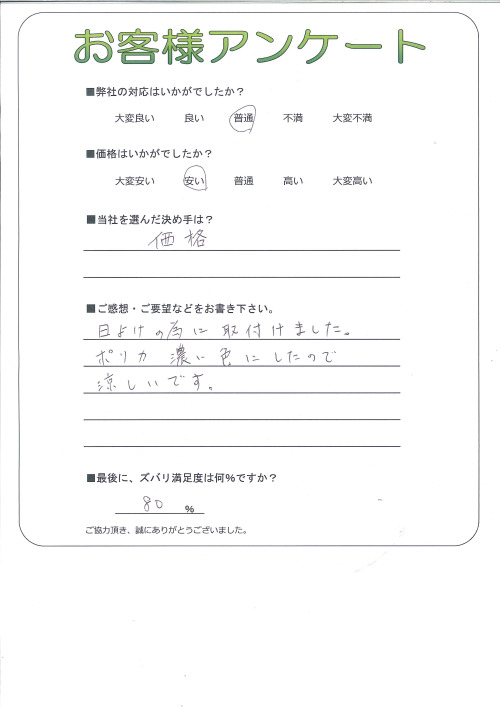 お客様アンケート
■弊社の対応はいかがでしたか？
大変良い 良い 普通 不満 大変不満
■価格はいかがでしたか？
大変安い 安い 普通 高い 大変高い
■当社を選んだ決め手は？
価格
■ご感想・ご要望などをお書き下さい。
日よけの為に取付けました。
ポリカ 濃い色にしたので
涼しいです。
■最後に、ズバリ満足度は何%ですか？
80 %
ご協力頂き、誠にありがとうございました。